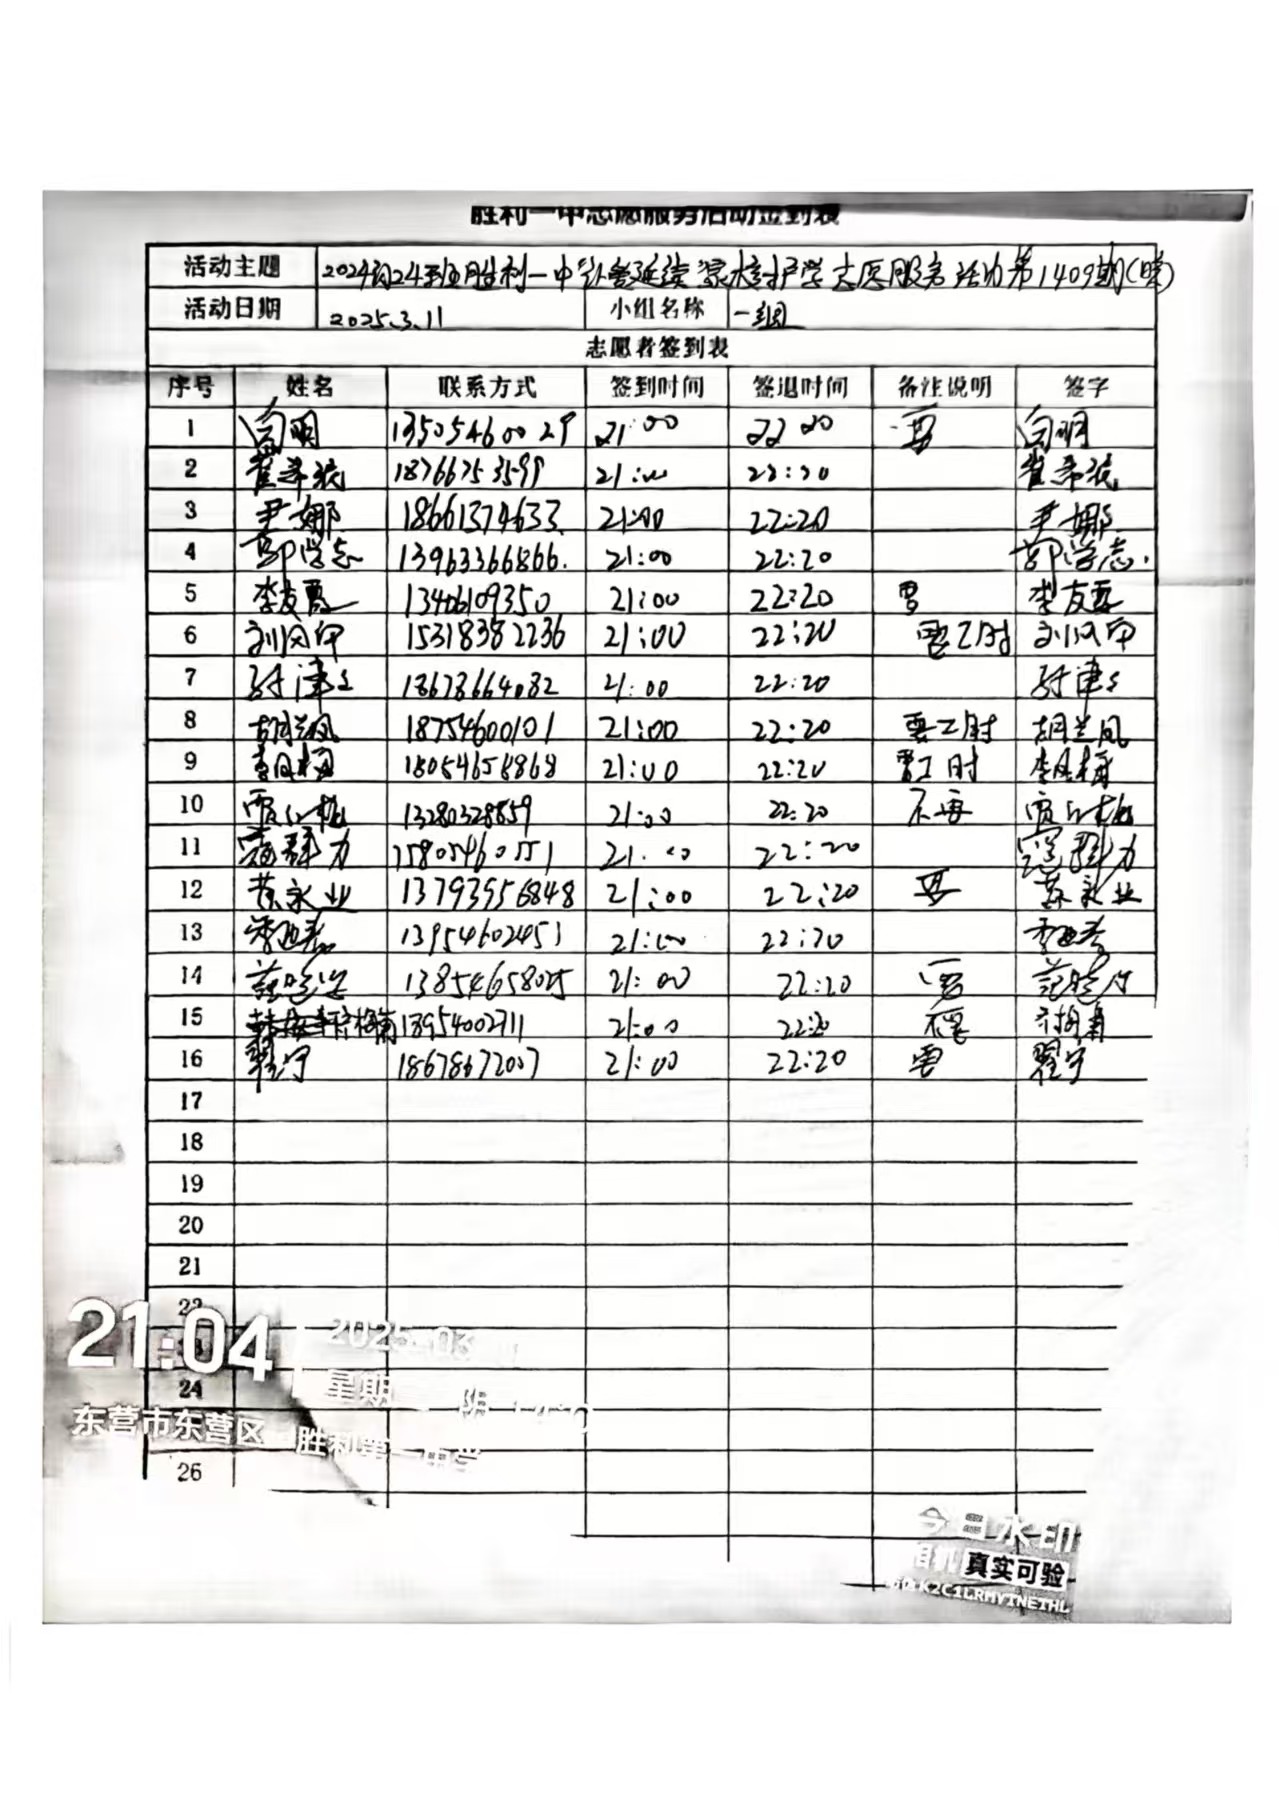 胜利一中志愿服务活动签到表
活动主题 2024级24班胜利一中"让爱延续 家校护学志愿服务活动第1409期(晚)
活动日期 2025.3.11 小组名称 一组
志愿者签到表
序号 姓名 联系方式 签到时间 签退时间 备注说明 签字
1 向明 13505460029 21:00 22 20 要 向明
2 崔希 18766753599 21:00 22:20 崔希
3 尹娜 18661374633 21:00 22:20 尹娜
4 郭学志 13963366866. 21:00 22:20 郭学志.
5 李友霞 13406109350 21:00 22:20 需 李友霞
6 15318382236 21:00 22:20 要工时
7 18678664082 21:00 22:20
8 胡兰凤 18754600101 21:00 22:20 要工时 胡兰凤
9 李凤梅 18054658868 21:00 22:20 要工时 李凤梅
10 贾红梅 13280328859 21:00 22:20 不要 贾红梅
11 寇群力 15805460551 21:00 22:20 寇群力
12 永业 13793956848 21:00 22:20 要 永业
13 李 13954602451 21:00 22:20 李
14 范晓 13854658025 21:00 22:20 要 范晓
15 18954002711 21:00 22:20
16 翟宁 18678672007 21:00 22:20 需 翟宁
17
18
19
20
21
22
21:04 2025-03
24
星期 阴
东营市东营区 胜利第一中学
26
今日水印
相机 真实可验
K2C1LRMYTNETHL